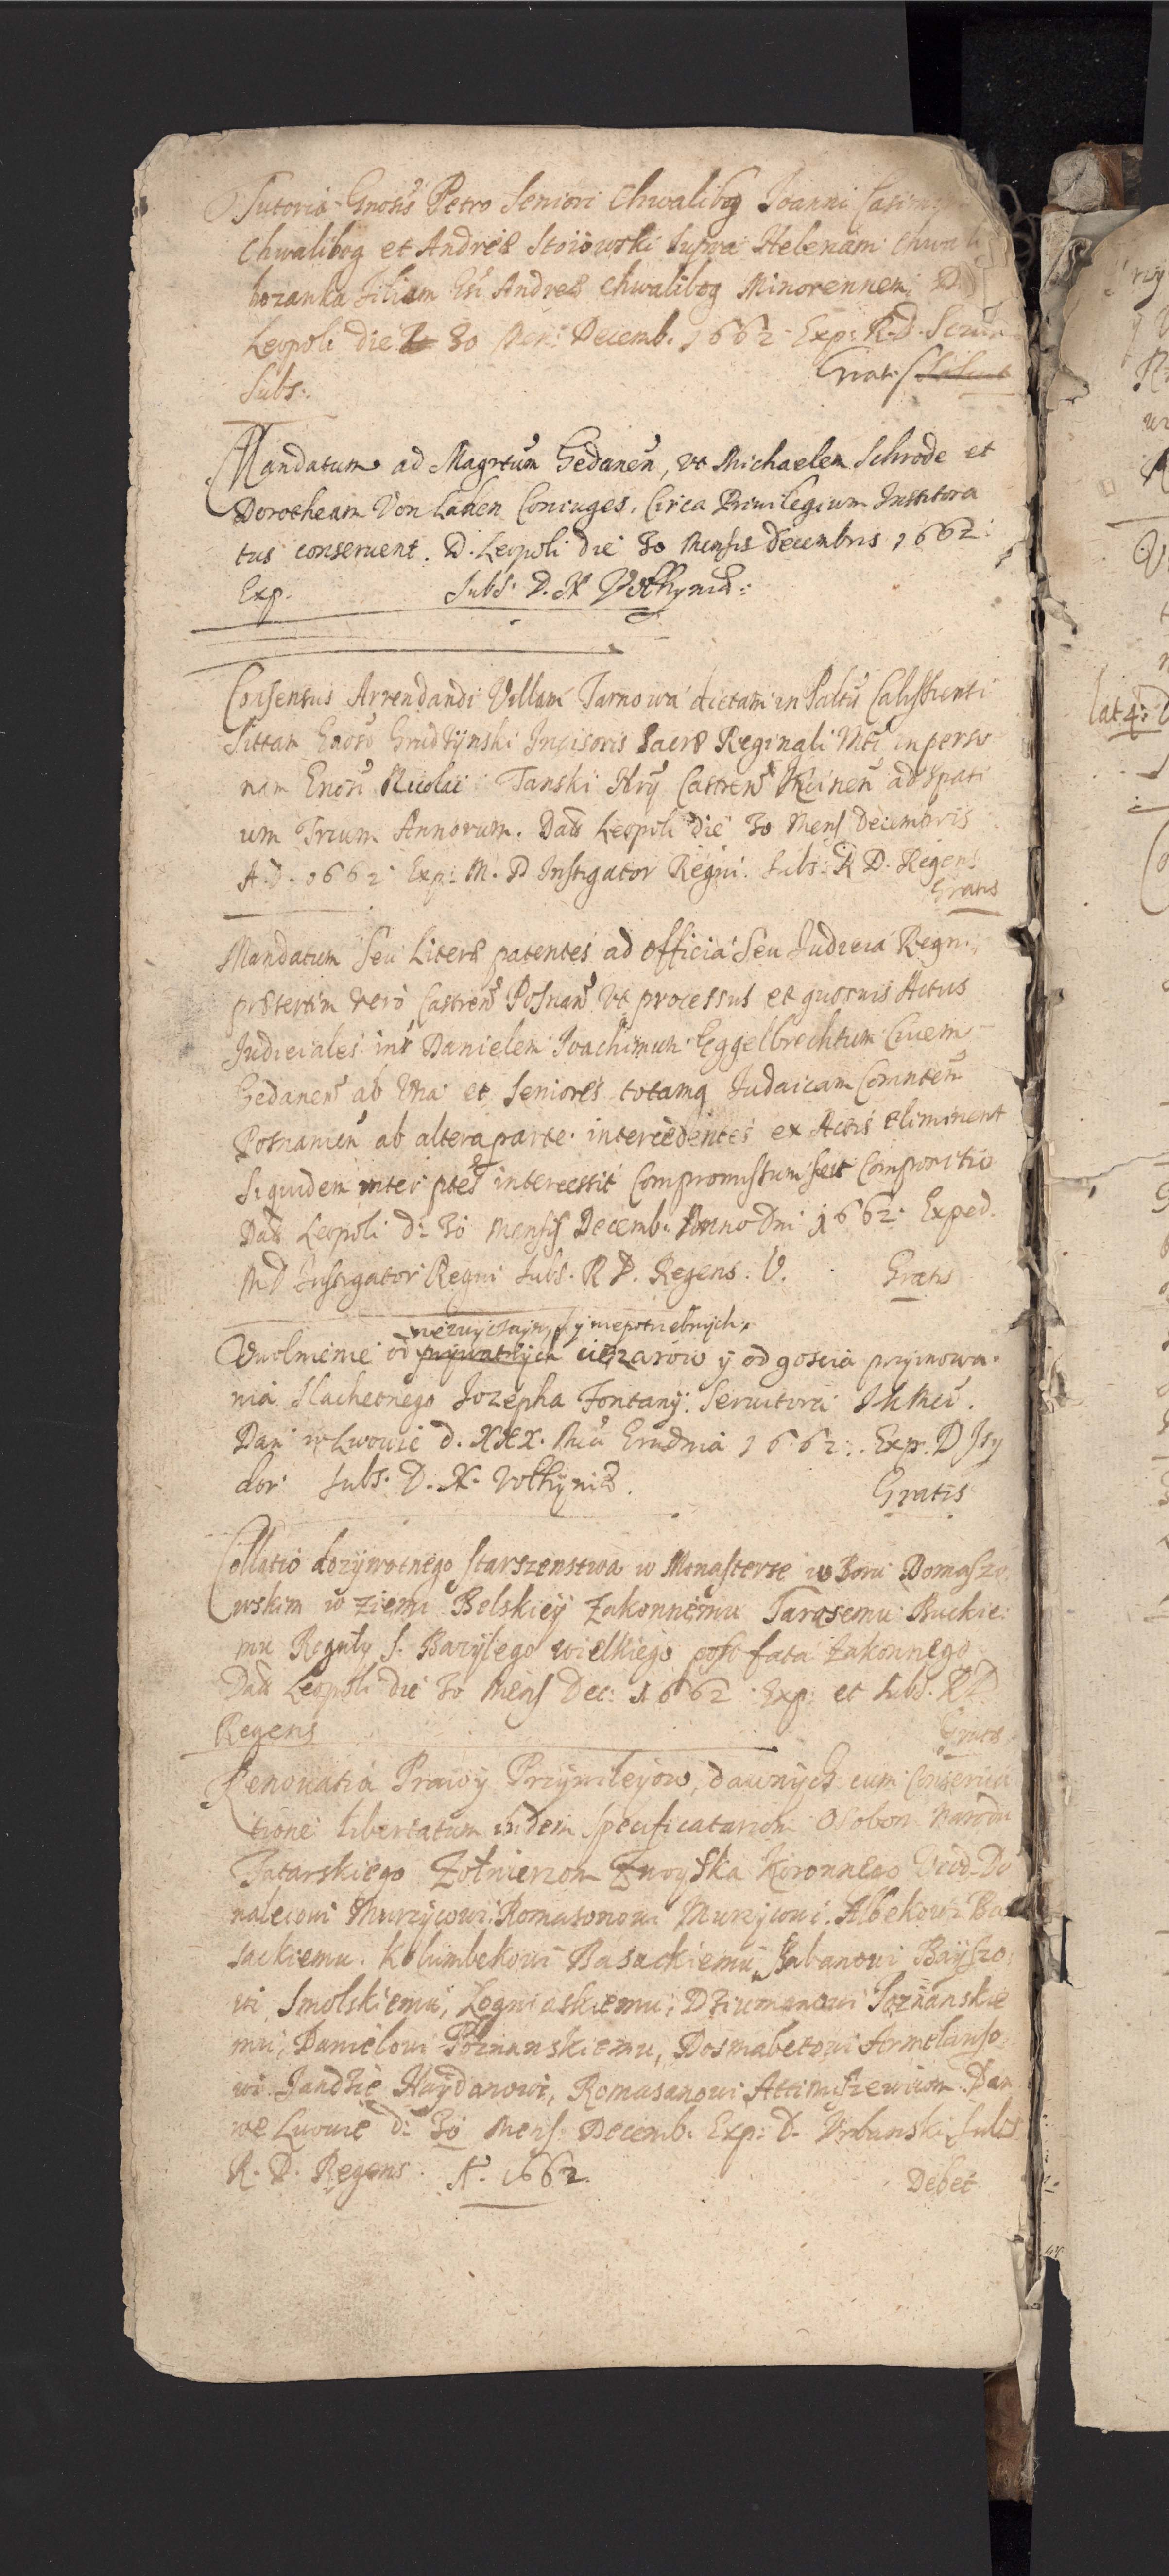 Tutoria Gnosis Petro Seniori Chwalibog Joanni Casim
Chwalibog et Andreæ Stoiowski supra Helenam Chwali
bozanka filiam Gsi Andreæ Chwalibog Minorennem D.
Leopoli die 30 Men: Decemb. 1662 Exp: R.D.
Subs. Grat.
Mandatum ad Magrtum Gedanen, vt Michaelem Schrode et
Dorotheam Von Laken Coniuges, Circa Priuilegium Institora
tus conseruent. D. Leopoli die 30 Mensis Decembris 1662:
Exp. Subs. D. N. Vołhyniæ:
Consensus Arrendandi Villam Tarnowa dictam in Saltu
Sittam Gnoso Grudzynski Incisoris Sacræ Reginali Mti in perso
nam Gnosi Nicolai Tanski Nrÿ Castren ad Spati
um Trium Annorum. Dat Leopoli die 30 Mens Decembris
A.D. 1662 Exp: M. D Instigator Regni. Subs: R D. Regens
Gratis
Mandatum Seu Literæ patentes ad officia Seu Judicia Regni,
præsertim vero Castren Posnan vt processus et quosuis Actus
Judiciales intr Danielem Joachimum Eggelbrechtum Ciuem
Gedanen ab Vna et Seniores totamq Judaicam Comnten
Posnanien ab altera parte intercedentes ex Actis eliminent
Siquidem inter ptes intercessit Compromissum seu Compositio
Dat Leopoli d: 30 Mensis Decemb. Anno Dni 1662. Exped.
M D Instigator Regni Subs. R D. Regens. V. Gratis
niezwyczaynych y niepotrzebnych
Vwolnienie od prywatnych cięzarow ÿ od goscia przymowa
nia Slachetnego Jozepha Fontanÿ Seruitora JKMci.
Dan w Lwowie d. XXX. Mca Grudnia 1662. Exp. D Isy
dor Subs. D. N. Vołhyniæ. Gratis
Collatio dozywotnego starszenstwa w Monasterze w Boru Domaszo
wskim w ziemi Belskieÿ Zakonnemu Tarasemu Buckie:
mu Reguły S. Bazylego wielkiego post fata zakonnego
Dat Leopoli die 30 Mens Dec: 1662 Exp: et Subs. R D
Regens Gratis
Renouatia Praw ÿ Przywileyow, dawnÿch cum Conserua
tione libertatum ibidem specificatarum Osobom Narodu
Tatarskiego Żołnierzom Zwoyska Koronnego Do
nalecowi Murzÿcowi Romasonowi Murzÿcowi. Albekowi Ba
sackiemu. Kolumbekowi Basackiemu, Sabanowi Baÿszo:
wi Smolskiemu, Łogniaskiemu, Dziumanowi Poznanskie
mu, Danielowi Poznanskiemu, Dosmabetowi Armelanso
wi Jandzie Haÿdanowi, Romasanowi Dan
we Lwowie d: 30 Mens. Decemb. Exp: D. Vrbanski Subs
R. D. Regens. A. 1662. Debet
lat 4: